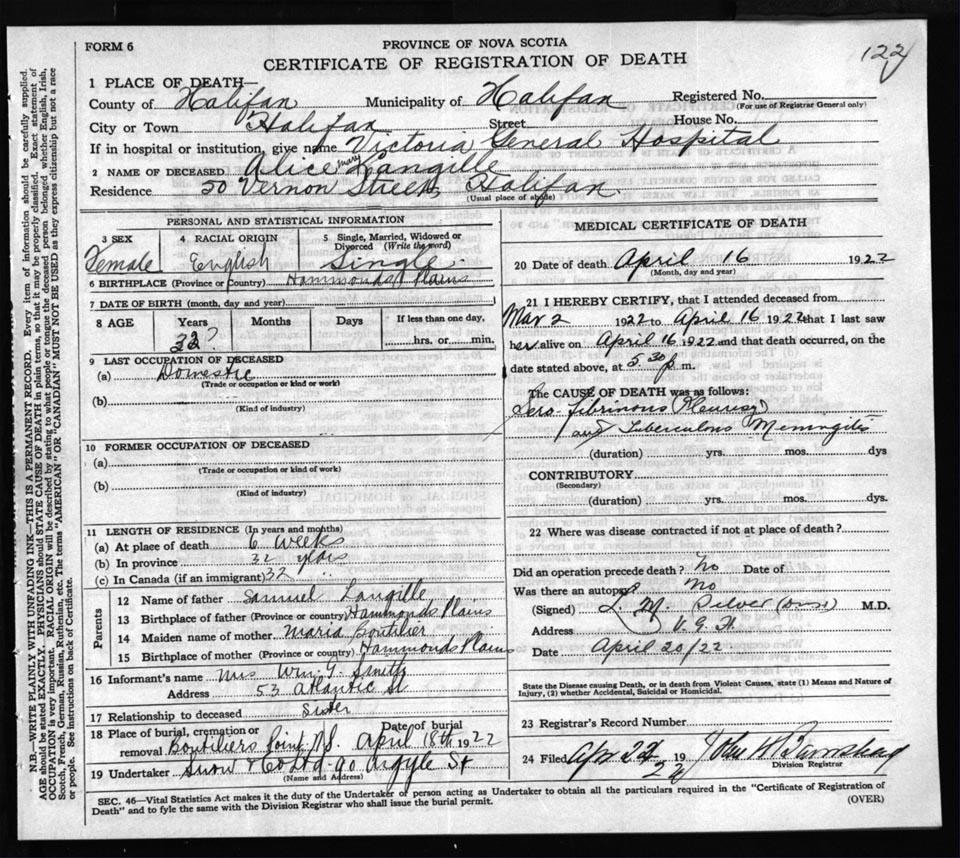 FORM 6
PROVINCE OF NOVA SCOTIA
CERTIFICATE OF REGISTRATION OF DEATH
122
1 PLACE OF DEATH—
County of Halifax Municipality of Halifax Registered No.
(For use of Registrar General only)
City or Town Halifax Street House No.
If in hospital or institution, give name Victoria General Hospital
2 NAME OF DECEASED Alice Mary Langille
Residence 50 Vernon Street, Halifax.
(Usual place of abode)
PERSONAL AND STATISTICAL INFORMATION
3 SEX Female
4 RACIAL ORIGIN English
5 Single, Married, Widowed or Divorced (Write the word) Single
6 BIRTHPLACE (Province or Country) Hammonds Plains
7 DATE OF BIRTH (month, day and year)
8 AGE Years Months Days If less than one day,
32? hrs. or min.
9 LAST OCCUPATION OF DECEASED
(a) Domestic
(Trade or occupation or kind or work)
(b)
(Kind of industry)
10 FORMER OCCUPATION OF DECEASED
(a)
(Trade or occupation or kind of work)
(b)
(Kind of industry)
11 LENGTH OF RESIDENCE (In years and months)
(a) At place of death 6 weeks
(b) In province 32 years
(c) In Canada (if an immigrant) 32
Parents
12 Name of father Samuel Langille
13 Birthplace of father (Province or country) Hammonds Plains
14 Maiden name of mother Maria Boutilier
15 Birthplace of mother (Province or country) Hammonds Plains
16 Informant's name Mrs Wm. Y. Smith
Address 53 Atlantic St
17 Relationship to deceased Sister
18 Place of burial, cremation or removal Boutiliers Point N.S. Date of burial April 18th 1922
19 Undertaker Snow & Co Ltd 90 Argyle St
(Name and Address)
MEDICAL CERTIFICATE OF DEATH
20 Date of death April 16 1922
(Month, day and year)
21 I HEREBY CERTIFY, that I attended deceased from
Mar 2 1922 to April 16 1922 that I last saw
her alive on April 16 1922 and that death occurred, on the
date stated above, at 5 30 p m.
The CAUSE OF DEATH was as follows:
Sero Fibrinous Pleurisy
and Tuberculous Meningitis
(duration) yrs. mos. dys
CONTRIBUTORY
(Secondary)
(duration) yrs. mos. dys.
22 Where was disease contracted if not at place of death?
Did an operation precede death? No Date of
Was there an autopsy? No
(Signed) L. M. Silver M.D.
Address V. G. H.
Date April 20/22
State the Disease causing Death, or in death from Violent Causes, state (1) Means and Nature of
Injury, (2) whether Accidental, Suicidal or Homicidal.
23 Registrar's Record Number
24 Filed Apr 22 1922
Division Registrar
SEC. 46—Vital Statistics Act makes it the duty of the Undertaker or person acting as Undertaker to obtain all the particulars required in the "Certificate of Registration of
Death" and to fyle the same with the Division Registrar who shall issue the burial permit.
(OVER)
N.B.—WRITE PLAINLY WITH UNFADING INK—THIS IS A PERMANENT RECORD. Every item of information should be carefully supplied.
AGE should be stated EXACTLY. PHYSICIANS should STATE CAUSE OF DEATH in plain terms, so that it may be properly classified. Exact statement of
OCCUPATION is very important. RACIAL ORIGIN will be described by stating to what people or tongue the deceased person belonged whether English, Irish,
Scotch, French, German, Russian, Ruthenian, etc. The terms "AMERICAN" OR "CANADIAN" MUST NOT BE USED as they express citizenship but not a race
or people. See instructions on back of Certificate.